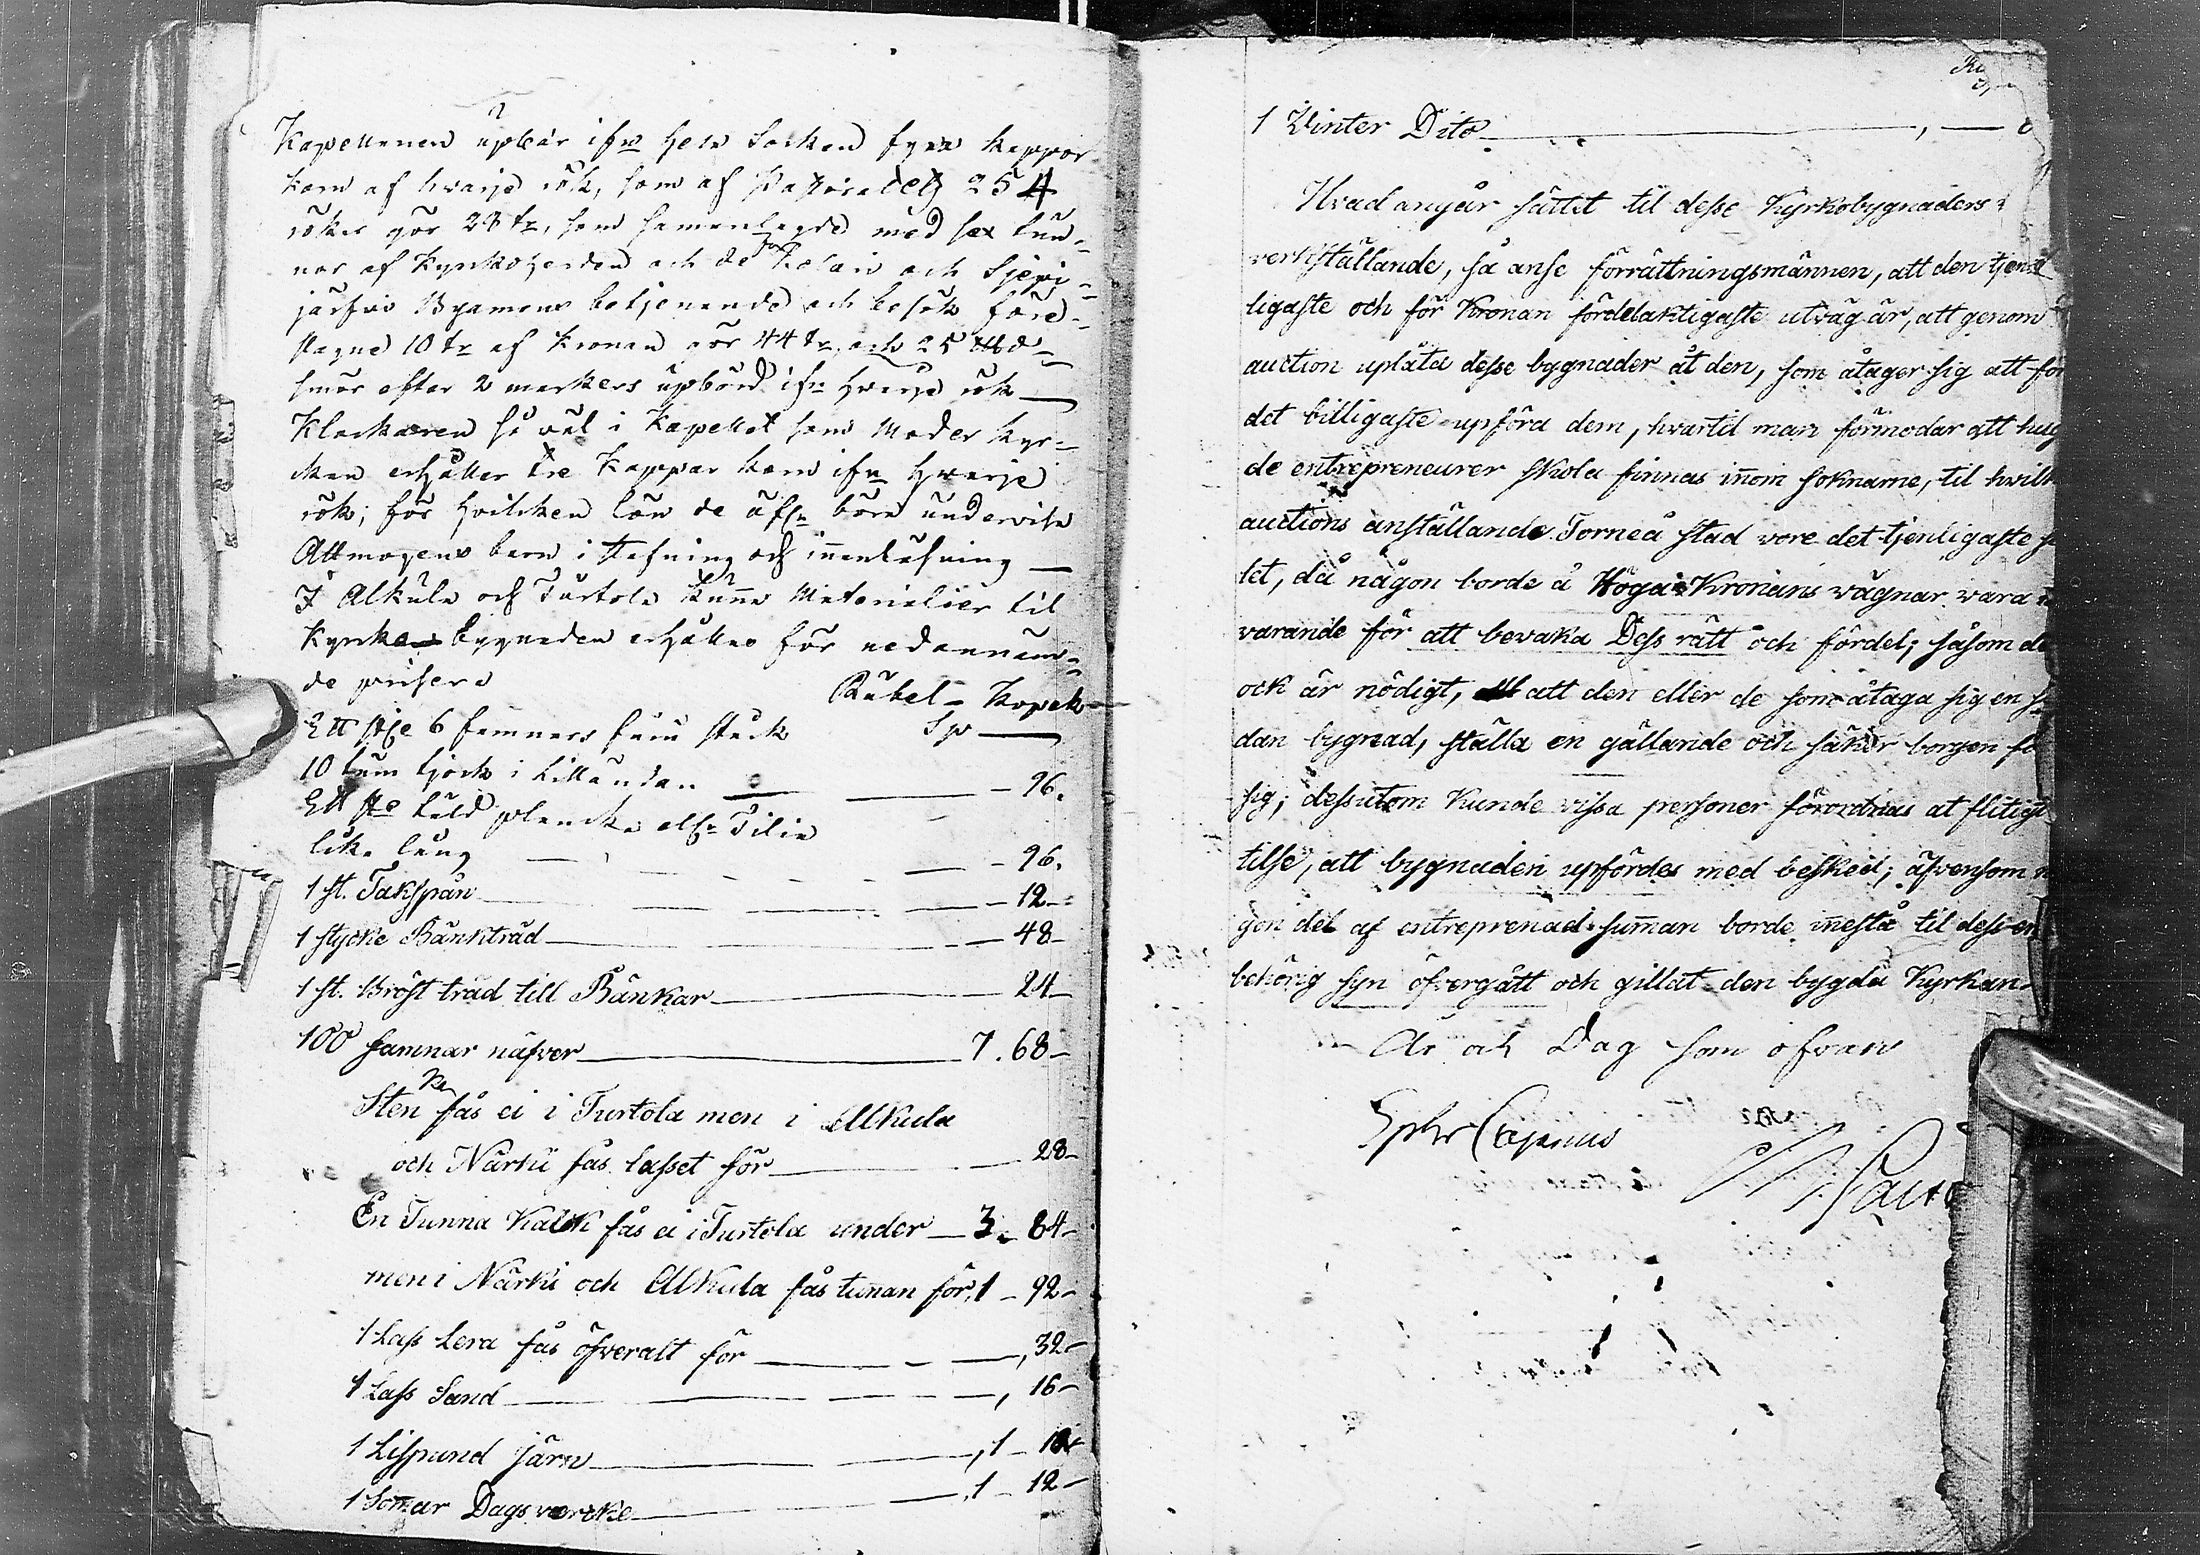 Kapellanen upbär ifrn hela Socken fyra kappor
korn af hvarje rök, som af Pastoratets 254
rökar gör 28 tr, som samanlagde med sex tun-
nor af Kyrkoherden och de för Kolari och Sjeri-
järfvi Byamens betjenande och besök före-
slagne 10 tr af Kronan gör 44 tr, och 25 ℔d
smör efter 2 markers upbörd ifrn hvarje rök
Klockaren så väl i Kapellet som Moder kyr-
kan erhåller tre Kappar korn ifrn hvarje
rök; för hvilcken lön de äfn böra undervisa
Allmogens barn i stafning och innanläsning
I Alkula och Turtola kunna Materialier til
Kyrko bygnaden erhållas för nedannäm-
de prisera
Rubel - Kopek
Ett stke 6 famnars furu stock Sr
10 tum tjock i Lilländan 96.
Ett ste Kuld plancka elr Tilia
lika lång 96.
1 st. Takspån 12
1 stycke Bänkträd 48
1 st. Bröst träd till Bänkar 24
100 famnar näfver 7. 68
Sten fås ei i Turtola men i Allkula
och Närki fås lasset för 28
En Tunna Kalk fås ei i Turtola under 3. 84
men i Närki och Allkula fås tunnan för 1 - 92
1 Lass Lera fås öfveralt för , 32
1 Lass Sand , 16
1 Lispund järn , 1
1 Somar Dagsvercke , 1 - 12
1 Winter Dito
Hvad angår sättet til desse Kyrkobygnaders
verkställande, så anse förrättningsmännen, att den tjen-
ligaste och för Kronan fördelaktigaste utväg är, att genom
auction uplåta desse bygnader åt den, som åtager sig att för
det billigaste upföra dem, hvartil man förmodar att hug
de entrepreneurer skola finnas inom soknarne, til hvilk
auctions anställande Torneå stad vore det tjenligaste
let, då någon borde å Höga Kronans vägnar vara
varande för att bevaka Dess rätt och fördel; såsom de
ock är nödigt, att den eller de som åtaga sig en så
dan bygnad, ställa en gällande och säker borgen fö
sig; dessutom kunde vissa personer förordnas at flitigt
tilse, att bygnaden upfördes med besked; äfvensom n
gon del af entreprenad summan borde innestå til dess en
behörig syn öfvergått och gillat den bygda Kyrkan.
År och Dag som ofvan